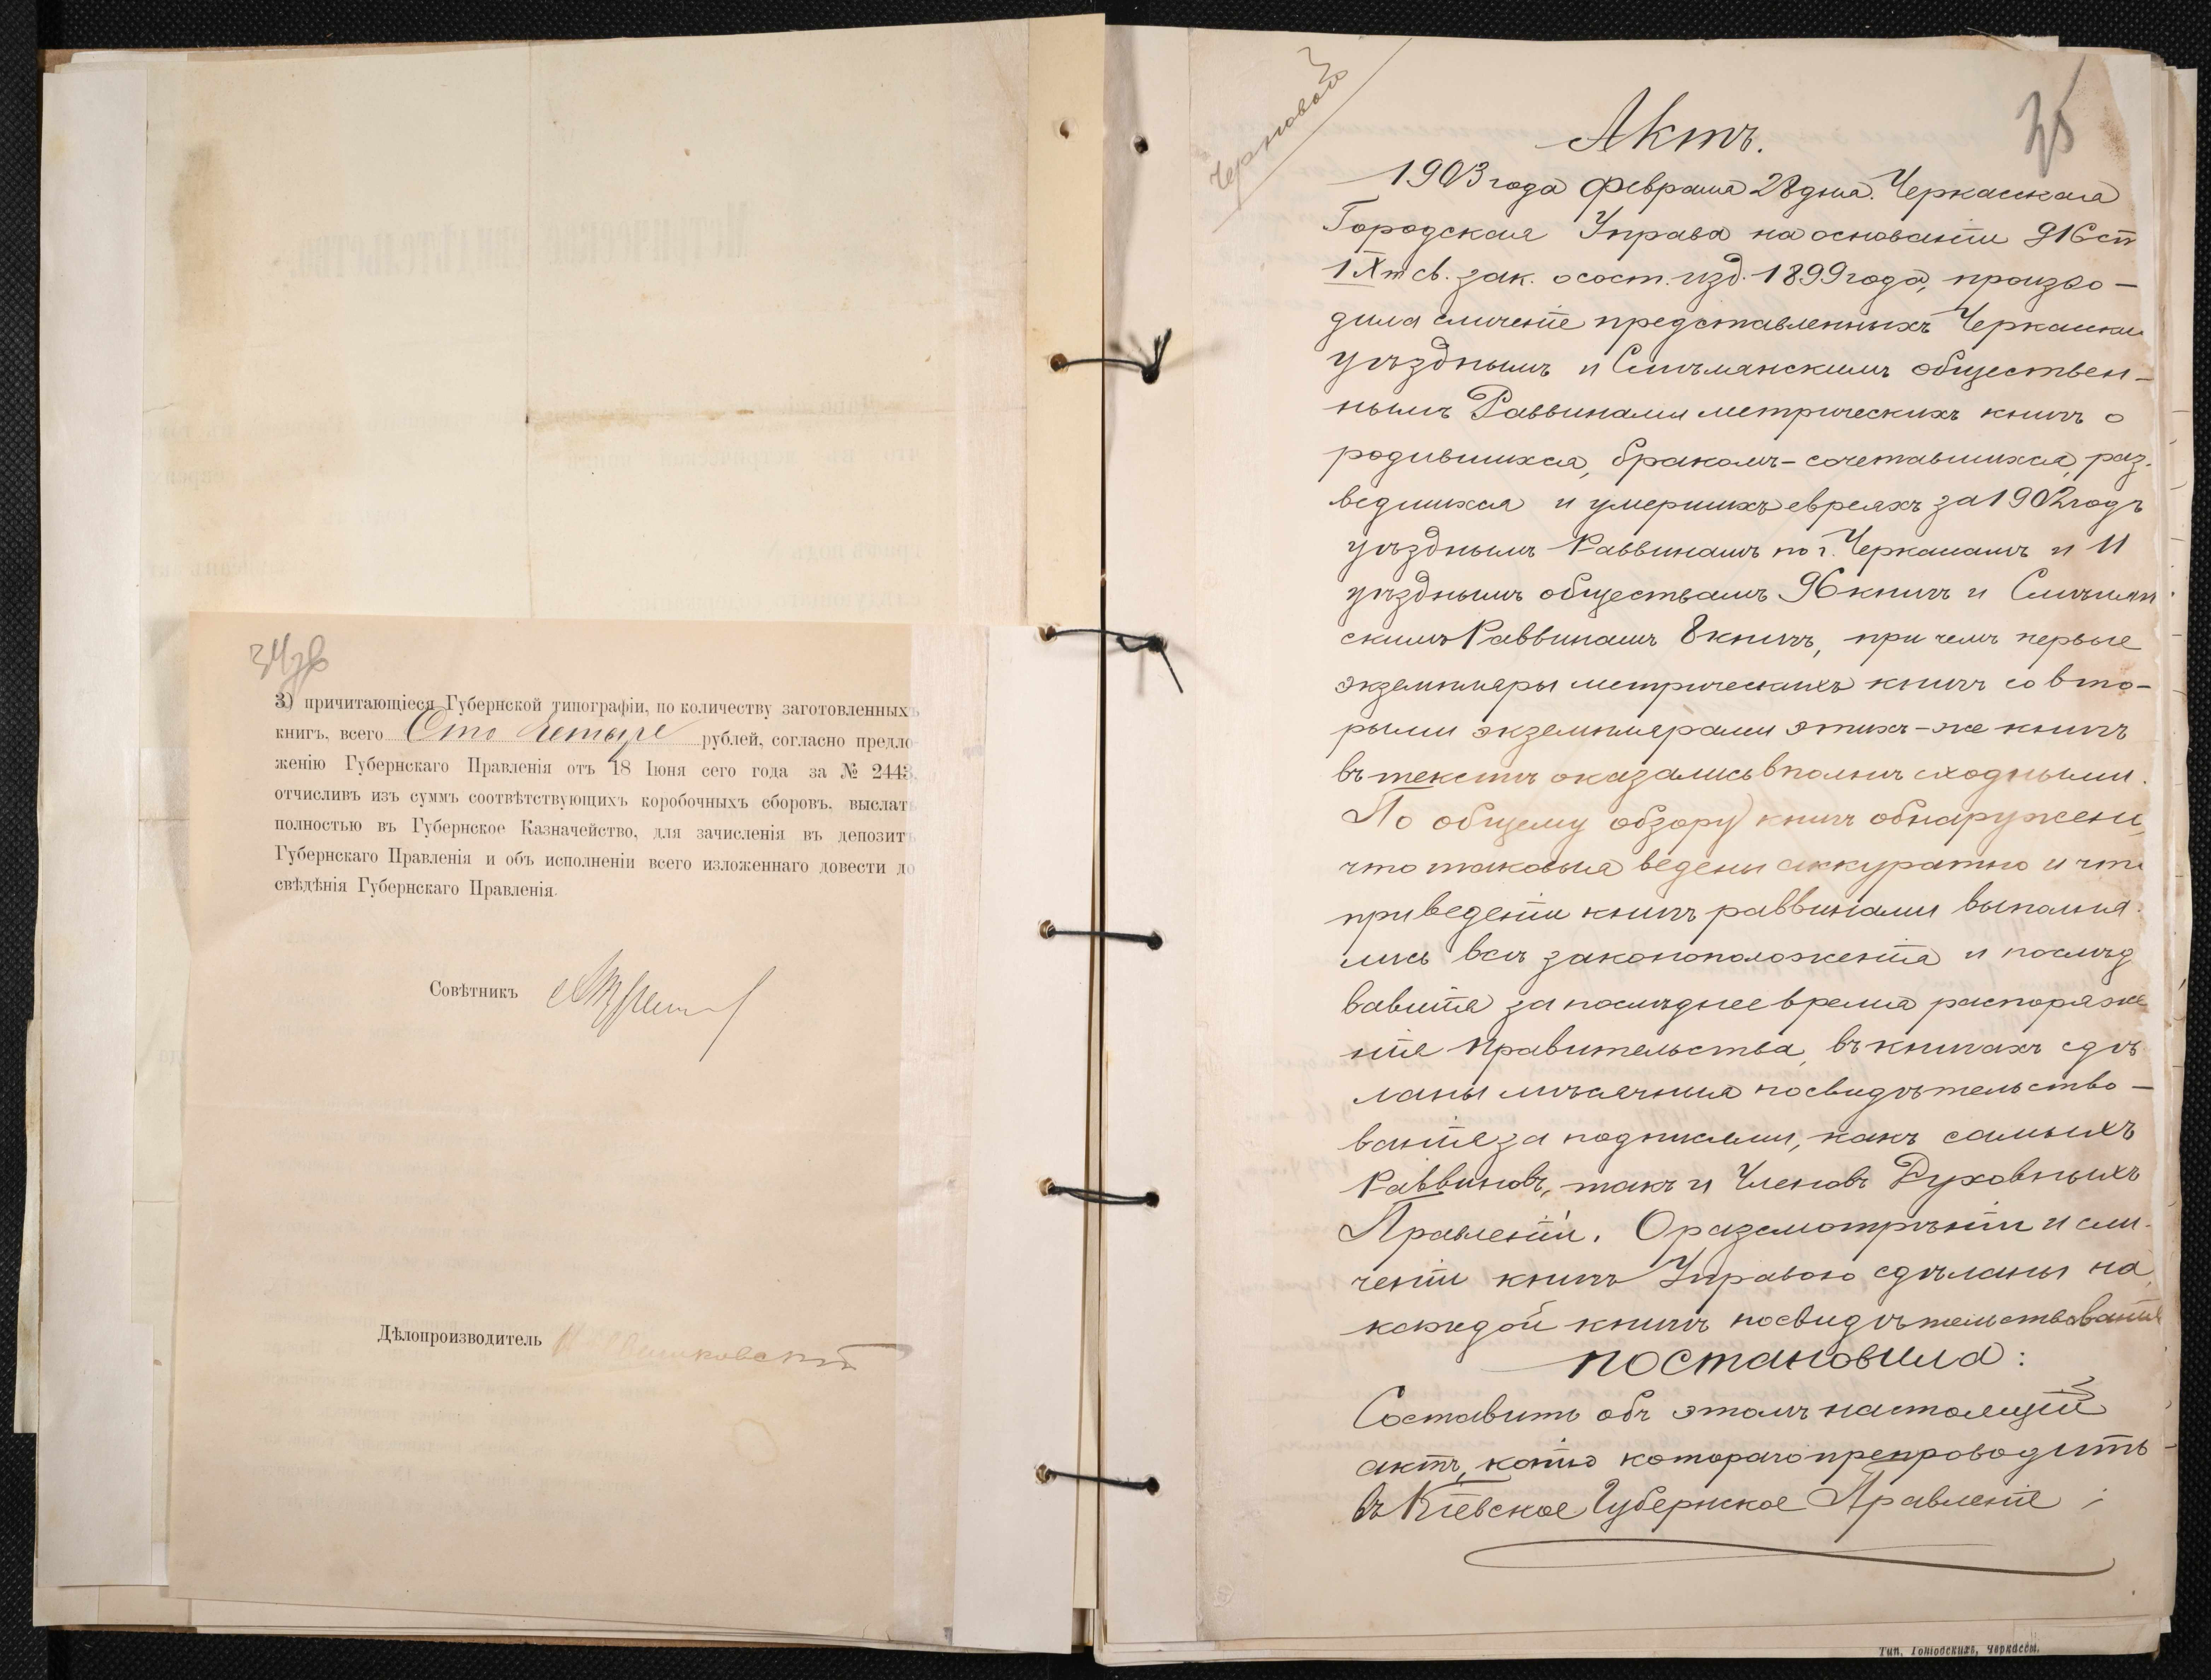 34 зв
3) причитающіеся Губернской типографіи, по количеству заготовленныхъ
книгъ, всего Сто четыре рублей, согласно предло
женію Губернскаго Правленія отъ 18 Іюня сего года за № 2443,
отчисливъ изъ суммъ соотвѣтствующихъ коробочныхъ сборовъ, выслать
полностью въ Губернское Казначейство, для зачисленія въ депозитъ
Губернскаго Правленія и объ исполненіи всего изложеннаго довести до
свѣдѣнія Губернскаго Правленія.
Совѣтникъ
Дѣлопроизводитель
Черновой
35
Актъ.
1903 года февраля 28 дня. Черкасская
Городская Управа на основаніи 916 ст
IX т св. зак. о сост. изд. 1899 года, произво-
дила сличеніе представленныхъ Черкасским
уѣзднымъ и Смѣлянскимъ обществен-
нымъ Раввинами метрическихъ книгъ о
родившихся, бракомъ-сочетавшихся, раз-
ведшихся и умершихъ евреяхъ за 1902 годъ
уѣзднымъ Раввиномъ по г. Черкасамъ и 11
уѣзднымъ обществамъ 96 книгъ и Смѣлян
скимъ Раввиномъ 8 книгъ, при чемъ первые
экземпляры метрическихъ книгъ со вто-
рыми экземплярами этихъ-же книгъ
въ текстѣ оказались вполнѣ сходными.
По общему обзору книгъ обнаружено,
что таковыя ведены аккуратно и что
при веденіи книгъ раввинами выполня-
лись всѣ законоположенія и послѣдо
вавшія за последнее время распоряже
нія Правительства, въ книгахъ сдѣ
ланы мѣсячныя посвидѣтельство-
ванія за подписями, какъ самыхъ
Раввиновъ, такъ и Членовъ Духовныхъ
Правленій. О разсмотрѣніи и сли-
ченіи книгъ Управою сдѣланы на
каждой книгѣ посвидѣтельствованія
постановила:
Составить объ этомъ настоящій
актъ, копію котораго препроводить
въ Кіевское Губернское Правленіе
Тип. Городскихъ, Черкассы.